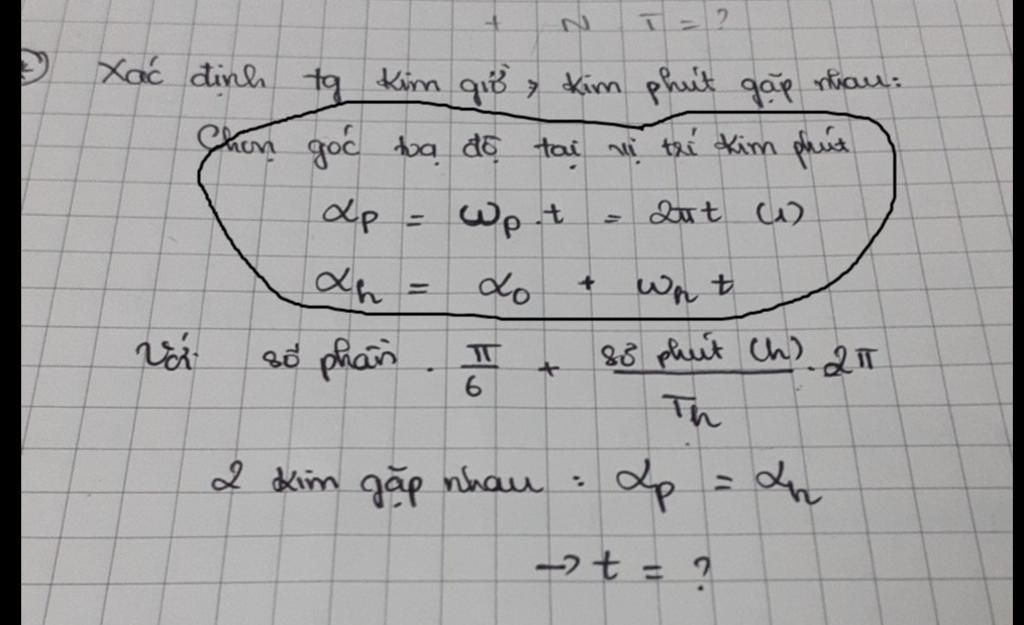 + N T = ?
② Xác định tg kim giờ, kim phút gặp nhau:
Chọn gốc toạ độ tại vị trí kim phút
αp = ωp . t = 2πt (1)
αh = α0 + ωh t
Với số phần . π/6 + số phút (h)/Th . 2π
2 kim gặp nhau : αp = αh
→ t = ?